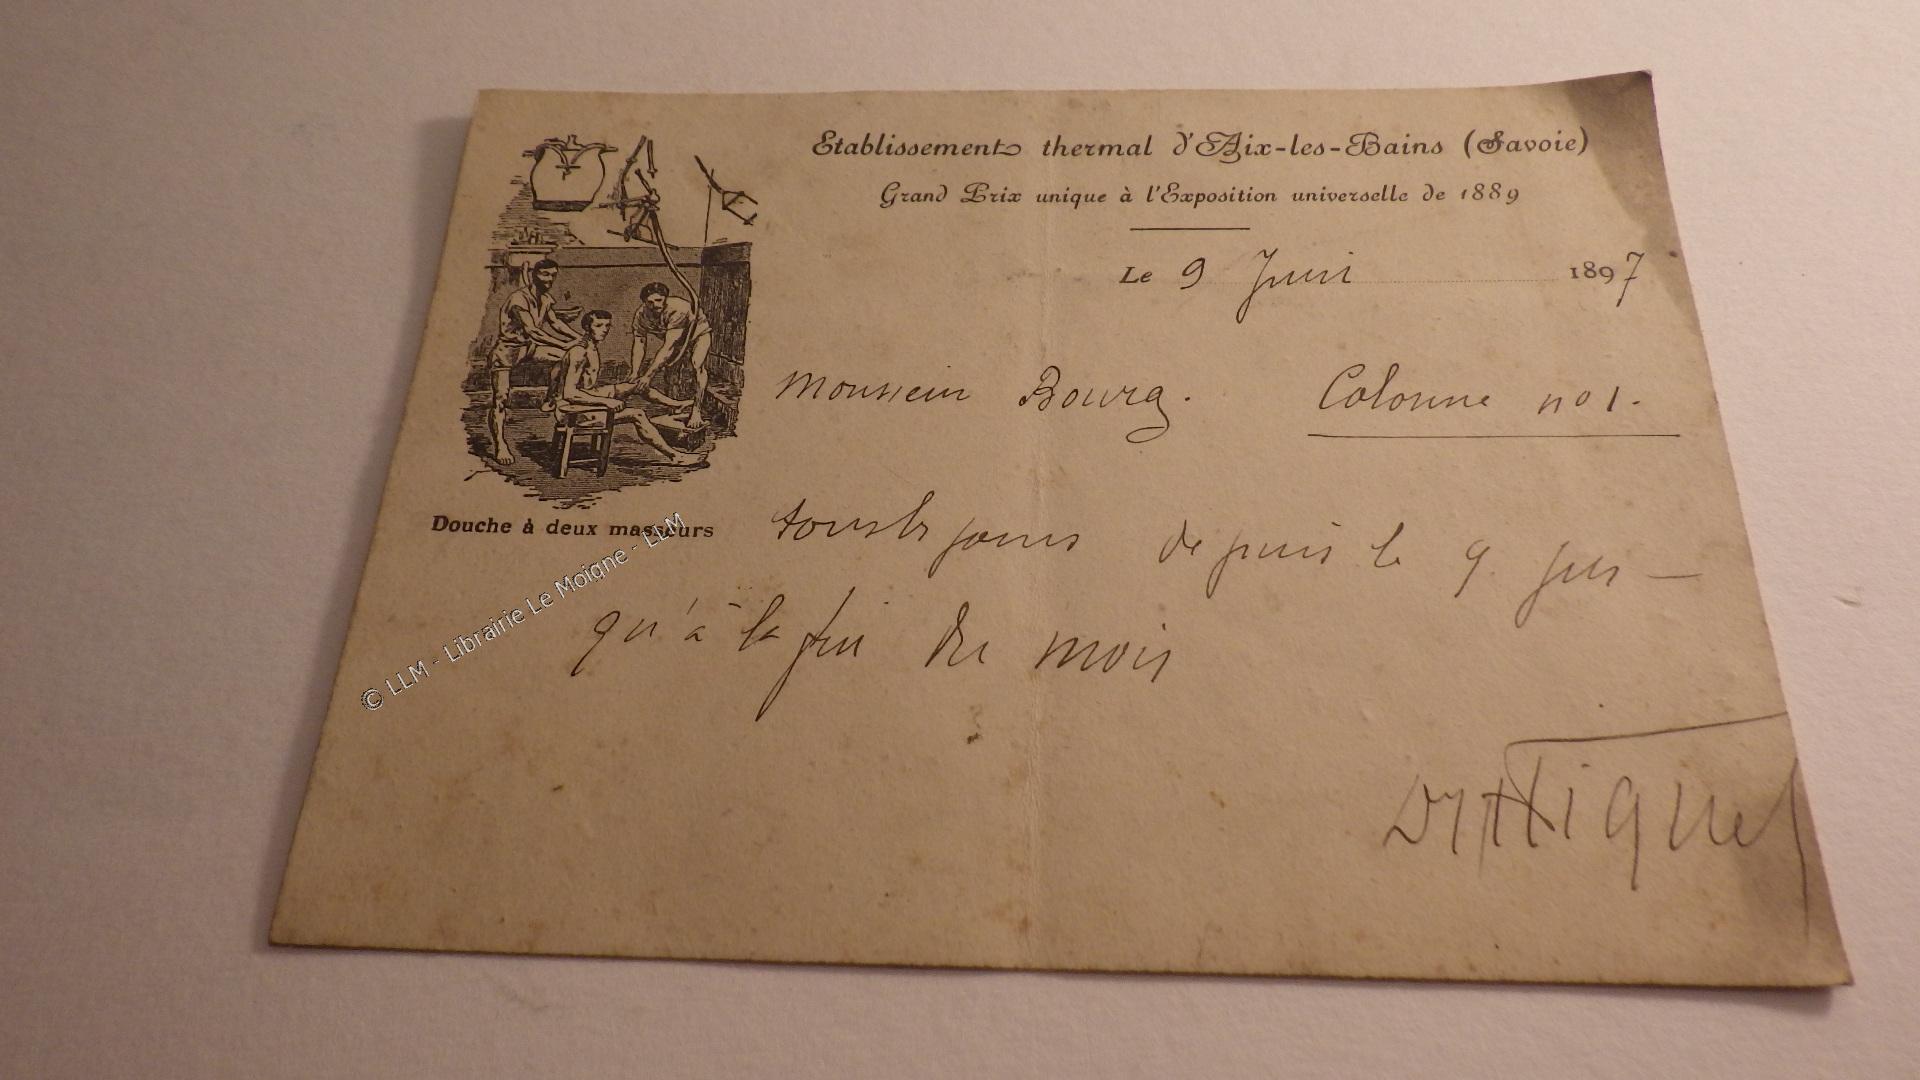 Etablissement thermal d'Aix-les-Bains (Savoie)
Grand Prix unique à l'Exposition universelle de 1889
Le 9 Juin 1897
Monsieur Bourg. Colonne no 1.
Douche à deux masseurs
tous les jours depuis le 9 jus-
qu'à la fin du mois
Dr
© LLM - Librairie Le Moigne - LLM